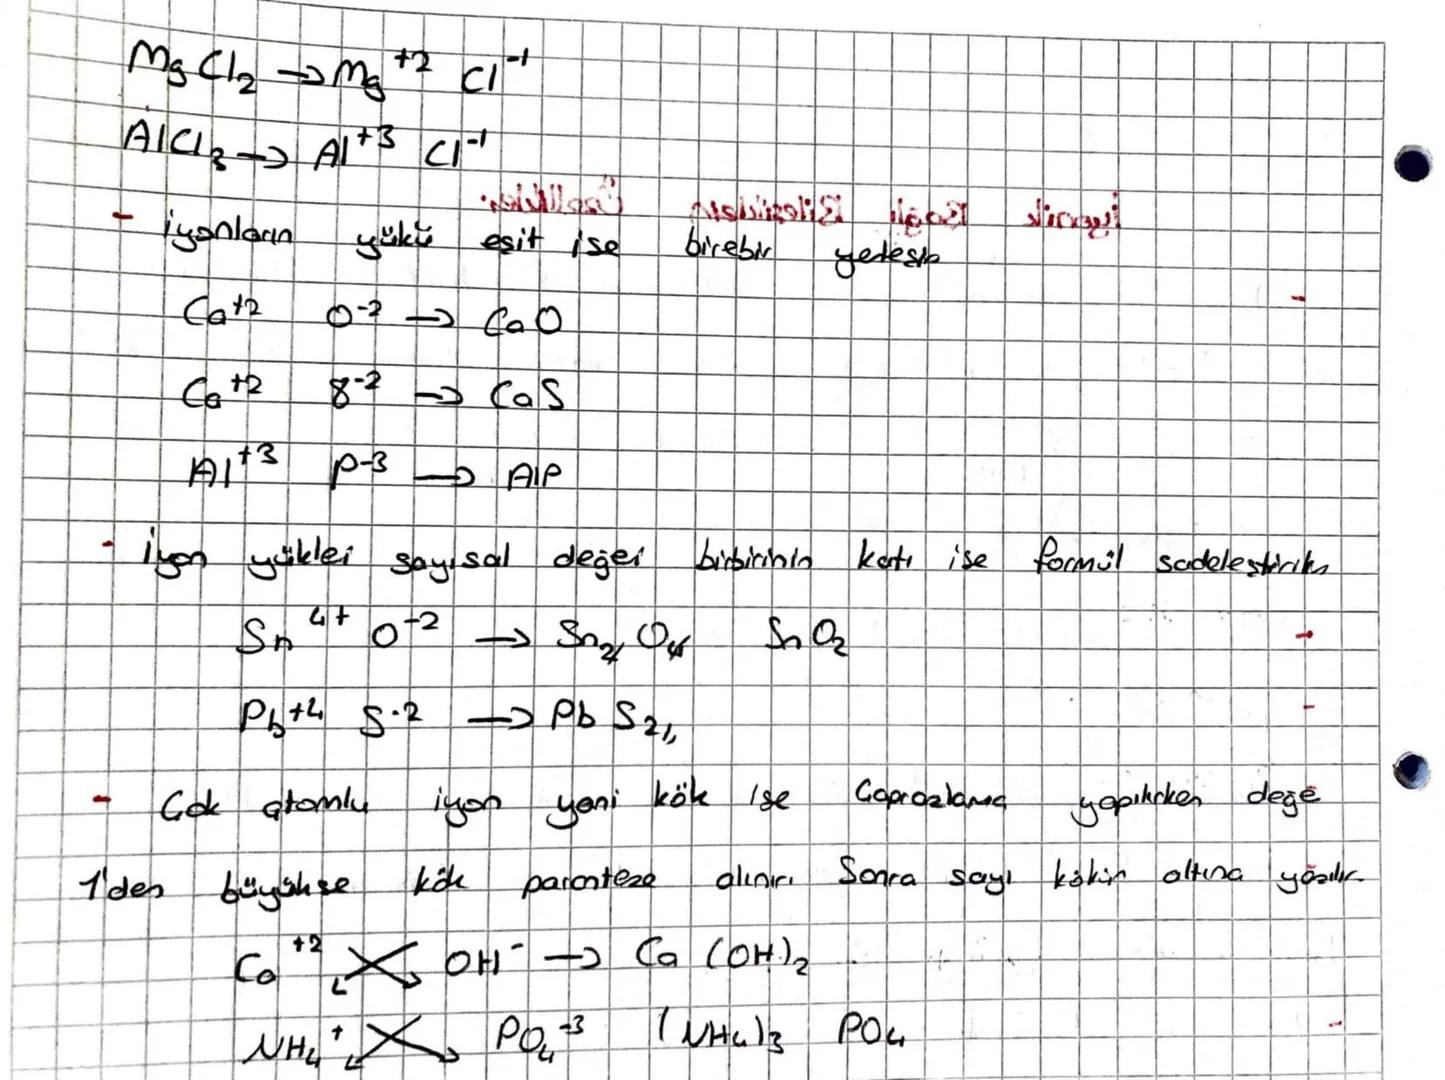 MgCl₂ → Mg⁺² Cl⁻¹
AlCl₃ → Al⁺³ Cl⁻¹
İyonik Bağlı Bileşiklerin Özellikleri
- iyonların yükü eşit ise birebir yerleşir
Ca⁺² O⁻² → CaO
Ca⁺² S⁻² → CaS
Al⁺³ P⁻³ → AlP
- İyon yükleri sayısal değeri birbirinin katı ise formül sadeleştirilir
Sn⁴⁺ O⁻² → Sn₂O₄ SnO₂
Pb⁺⁴ S⁻² → PbS₂
- Çok atomlu iyon yani kök ise Çaprazlama yapılırken değe
1'den büyükse kök paranteze alınır. Sonra sayı kökün altına yazılır.
Ca⁺² OH⁻ → Ca(OH)₂
NH₄⁺ PO₄⁻³ (NH₄)₃ PO₄